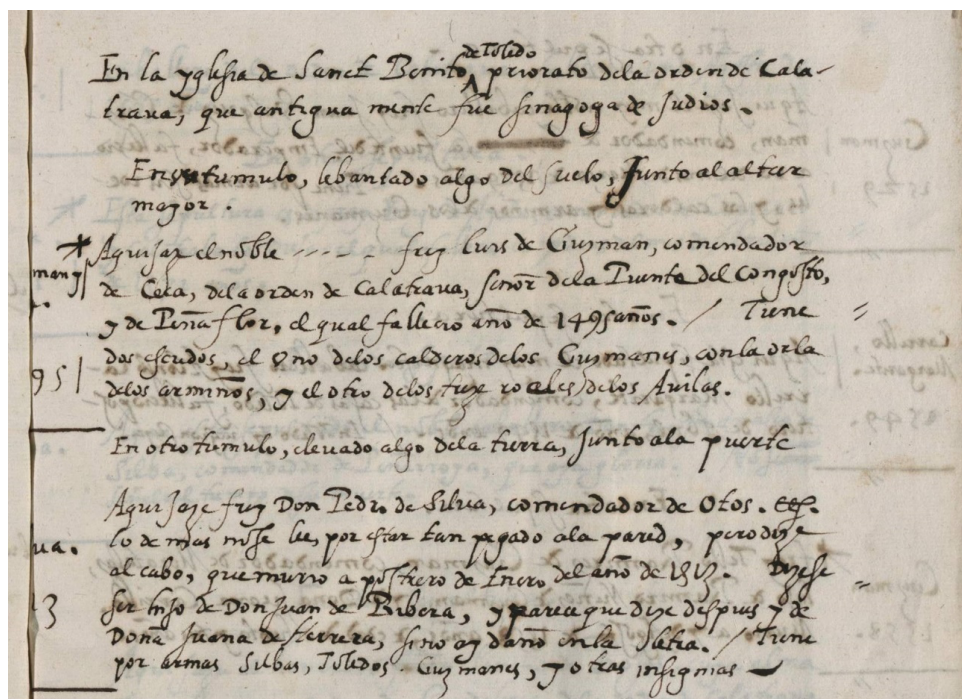 de Toledo
En la yglesia de Sanct Benito, priorato dela orden de Cala-
trava, que antigua mente fue sinagoga de Judios.
En un tumulo, lebantado algo del suelo, Junto al altar
mayor.
* Aqui jaze el noble ----- frey Luis de Guzman, comendador
man y
de Ceca, dela orden de Calatrava, señor dela Puente del Congosto,
y de Peñaflor, el qual fallecio año de 1495 años. / Tiene =
dos escudos, el Uno delos calderos delos Guzmanes, con la orla
95 | delos armiños, y el otro delos treze roeles delos Avilas.
En otro tumulo, elevado algo dela tierra, Junto ala puerta
Aqui Jaze frey Don Pedro de Silva, comendador de Otos.
ua. lo de mas no se lee, por estar tan pegado ala pared, pero dize
al cabo, que murio a postrero de Enero del año de 1513. Dizese =
3 ser hijo de Don Juan de Ribera, y parece que dize despues y de
Doña Juana de Herrera, sino ay daño en la letra. / Tiene
por armas Silbas, Toledos. Guzmanes, y otras insignias